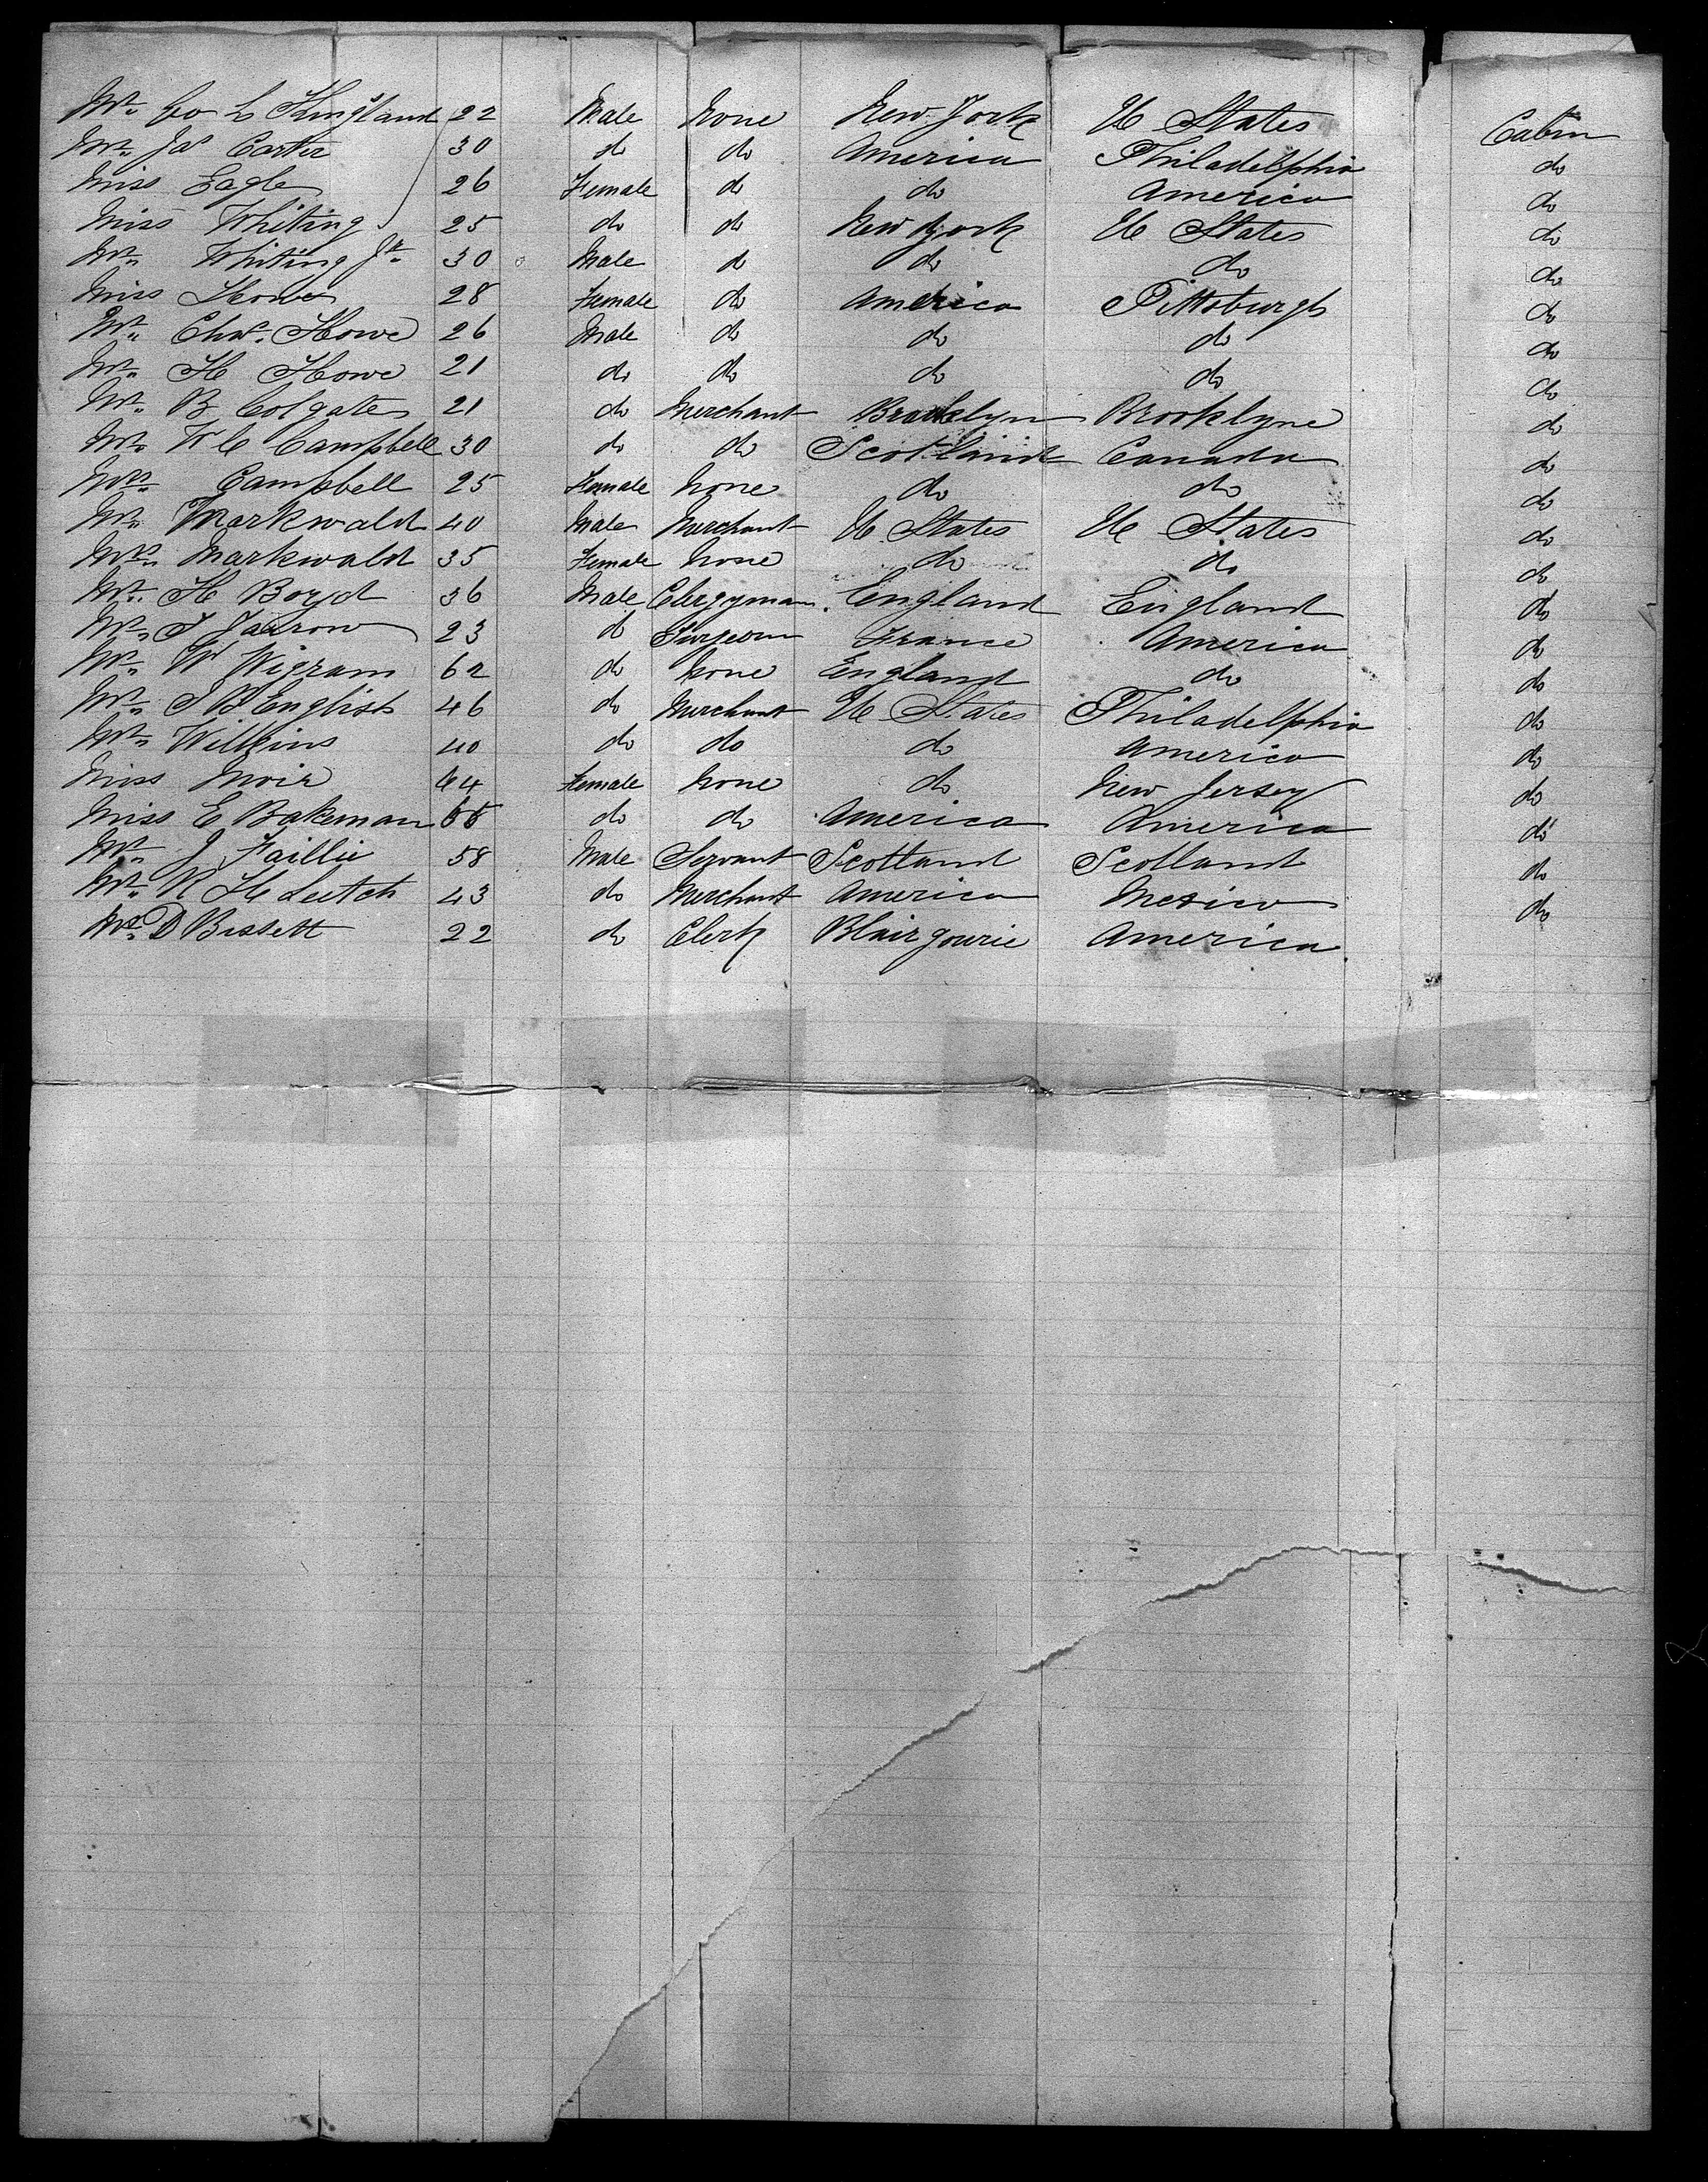 Mr. Geo L Kingsland 22 Male None New York U States Cabin
Mr. Jas Carter 30 do do America Philadelphia do
Miss Eagle 26 Female do do America do
Miss Whiting 25 do do New York U States do
Mr. Whiting Jr. 30 Male do do do do
Miss Howe 28 Female do America Pittsburgh do
Mr. Chas. Howe 26 Male do do do do
Mr. H Howe 21 do do do do do
Mr. B Colgate 21 do Merchant Brooklyn Brooklyne do
Mr. W C Campbell 30 do do Scotland Canada do
Mrs. Campbell 25 Female None do do do
Mr. Markwald 40 Male Merchant U States U States do
Mrs. Markwald 35 Female None do do do
Mr. H Boyd 36 Male Clergyman England England do
Mr. J Jarrow 23 do Surgeon France America do
Mr. W Wigram 62 do None England do do
Mr. J B English 46 do Merchant U States Philadelphia do
Mr. Wilkins 40 do do do America do
Miss Moir 44 Female None do New Jersey do
Miss E Bakeman do do America America do
Mr. J Faillie 58 Male Servant Scotland Scotland do
Mr. R H Leetch 43 do Merchant America Mexico do
Mr. D Bissett 22 do Clerk Blairgourie America